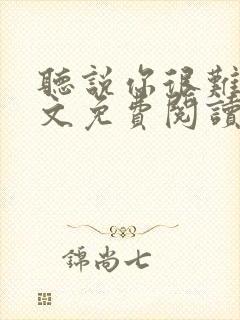 聽說你很難
文免費閱讀
錦尚七